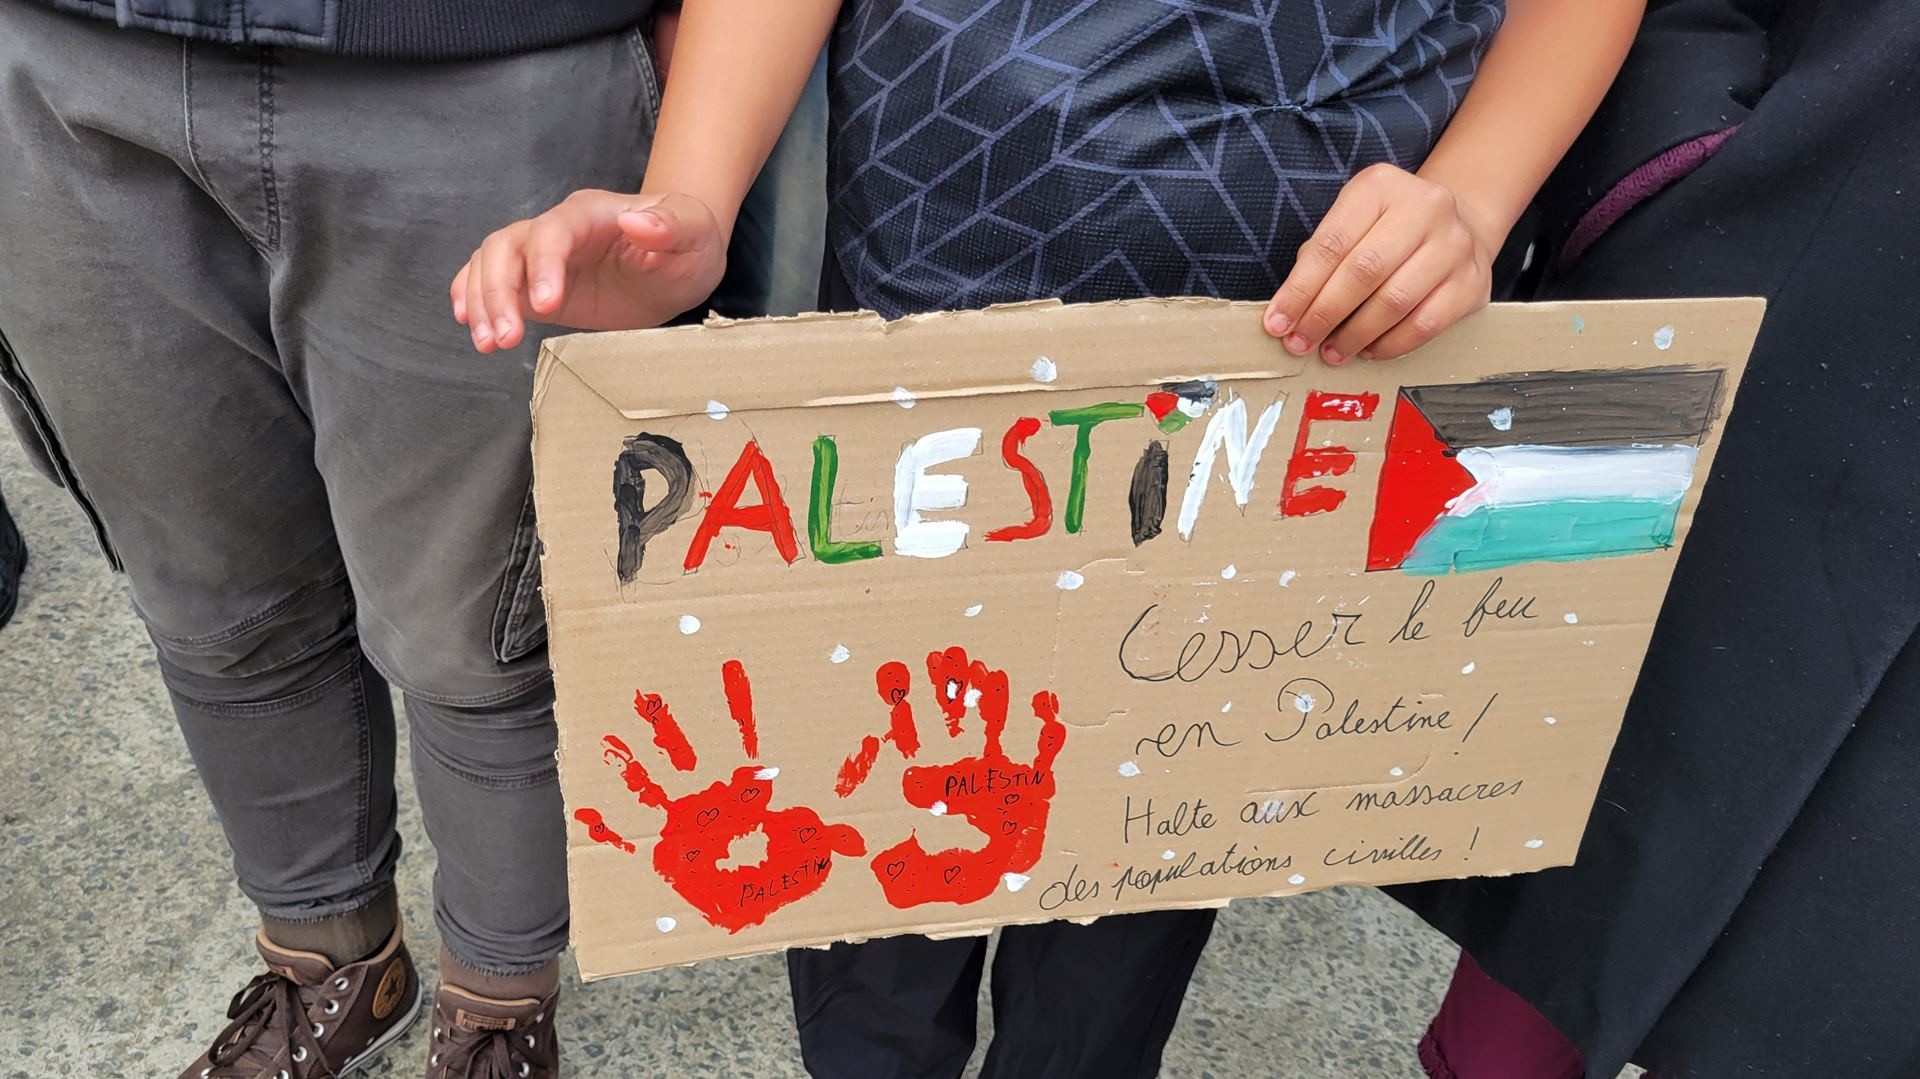 PALESTiNE
Cesser le feu
en Palestine !
PALESTIN
PALESTIN
Halte aux massacres
des populations civilles !